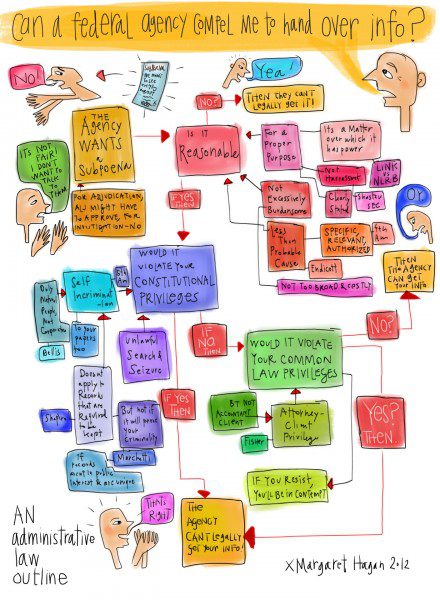 Can a federal agency compel me to hand over info?
No!
Subpoena
Yea!
No?
Then they can't
legally get it!
THE
Agency
WANTS
a
Subpoena
Is it
Reasonable
For a
Proper
Purpose
It's a Matter
over which it
has power
Not Harassment
LINK v
NLRB
Clearly
Stated
Shasta v
SEC
It's NOT
FAIR! I
DON'T
WANT to
TALK to
THEM
For Adjudication,
ALJ might HAVE
to Approve, for
Investigation-No
If YES
Then
Not
Excessively
Burdensome
Less
Than
Probable
Cause
SPECIFIC,
RELEVANT,
AUTHORIZED
4th
Am
Endicott
NOT TOO BROAD & COSTLY
OY
Then
The Agency
CAN get
your INFO!
Would it
VIOLATE Your
CONSTITUTIONAL
PRIVILEGES
5th
Am
Self
Incriminat
-ion
Only
Natural
People,
Not
Corporations
Bellis
To your
papers
too
Unlawful
Search &
Seizure
Doesn't
apply to
Records
that are
Required
to be
kept
Shapiro
But not if
it will prove
your
Criminality
Marchetti
If
records
aren't in public
Interest & are unique
If YES
Then
If
No,
Then
Would it VIOLATE
Your Common
LAW PRIVILEGES
No?
Yes?
Then.
BT NOT
Accountant
Client
Attorney-
Client
Privilege
Fisher
If You Resist,
You'll Be in Contempt
The
Agency
CAN'T Legally
get your INFO!
THAT'S
RIGHT
AN
administrative
law
outline
x Margaret Hagan 2012